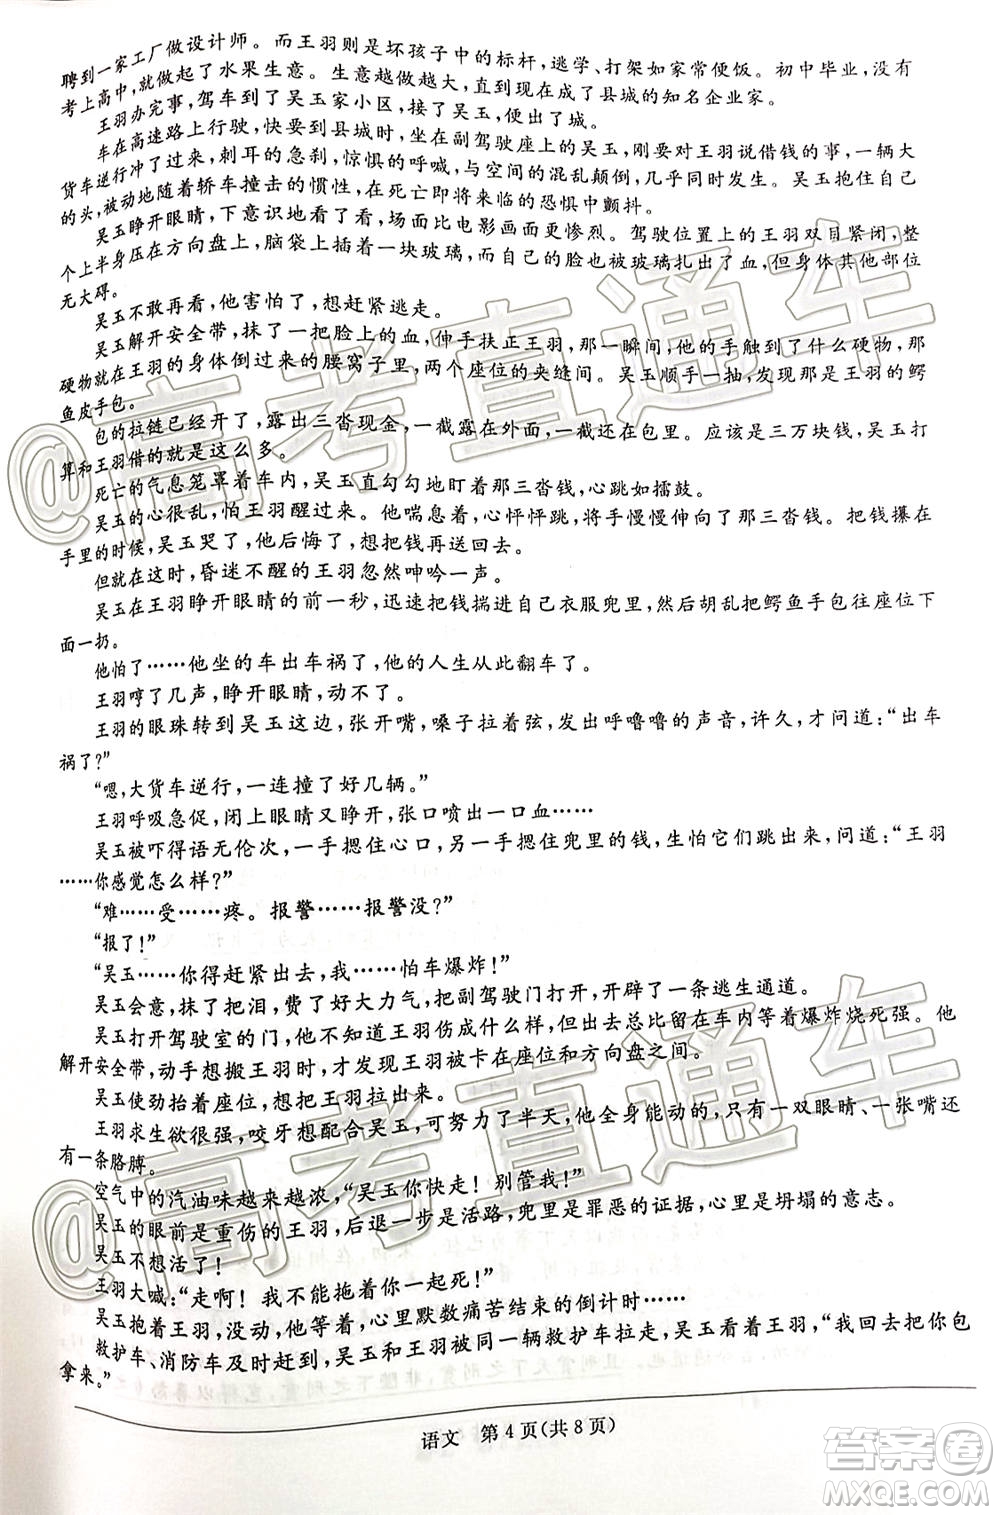 聘到一家工厂做设计师。而王羽则是坏孩子中的标杆,逃学、打架如家常便饭。初中毕业,没有
考上高中,就做起了水果生意。生意越做越大,直到现在成了县城的知名企业家。
王羽办完事,驾车到了吴玉家小区,接了吴玉,便出了城。
车在高速路上行驶,快要到县城时,坐在副驾驶座上的吴玉,刚要对王羽说借钱的事,一辆大
货车逆行冲了过来,刺耳的急刹,惊惧的呼喊,与空间的混乱颠倒,几乎同时发生。吴玉抱住自己
的头,被动地随着轿车撞击的惯性,在死亡即将来临的恐惧中颤抖。
吴玉睁开眼睛,下意识地看了看,场面比电影画面更惨烈。驾驶位置上的王羽双目紧闭,整
个上半身压在方向盘上,脑袋上插着一块玻璃,而自己的脸也被玻璃扎出了血,但身体其他部位
无大碍。
吴玉不敢再看,他害怕了,想赶紧逃走。
吴玉解开安全带,抹了一把脸上的血,伸手扶正王羽,那一瞬间,他的手触到了什么硬物,那
硬物就在王羽的身体倒过来的腰窝子里,两个座位的夹缝间。吴玉顺手一抽,发现是王羽的鳄
鱼皮手包。
包的拉链已经开了,露出三沓现金,一截露在外面,一截还在包里。应该是三万块钱,吴玉打
算和王羽借的就是这么多。
死亡的气息笼罩着车内,吴玉直勾勾地盯着那三沓钱,心跳如擂鼓。
吴玉的心很乱,怕王羽醒过来。他喘息着,心怦怦跳,将手慢慢伸向了那三沓钱。把钱攥在
手里的时候,吴玉哭了,他后悔了,想把钱再送回去。
但就在这时,昏迷不醒的王羽忽然呻吟一声。
吴玉在王羽睁开眼睛的前一秒,迅速把钱揣进自己衣服兜里,然后胡乱把鳄鱼手包往座位下
面一扔。
他怕了……他坐的车出车祸了,他的人生从此翻车了。
王羽哼了几声,睁开眼睛,动不了。
王羽的眼珠转到吴玉这边,张开嘴,嗓子拉着弦,发出呼噜噜的声音,许久,才问道:“出车
祸了?”
“嗯,大货车逆行,一连撞了好几辆。”
王羽呼吸急促,闭上眼睛又睁开,张口喷出一口血……
吴玉被吓得语无伦次,一手捂住心口,另一手摁住兜里的钱,生怕它们跳出来,问道:“王羽
……你感觉怎么样?”
“难……受……疼。报警……报警没?”
“报了!”
“吴玉……你得赶紧出去,我……怕车爆炸!”
吴玉会意,抹了把泪,费了好大力气,把副驾驶门打开,开辟了一条逃生通道。
吴玉打开驾驶室的门,他不知道王羽伤成什么样,但出去总比留在车内等着爆炸烧死强。他
解开安全带,动手想搬王羽时,才发现王羽被卡在座位和方向盘之间。
吴玉使劲抬着座位,想把王羽拉出来。
王羽求生欲很强,咬牙想配合吴玉,可努力了半天,他全身能动的,只有一双眼睛、一张嘴还
有一条胳膊。
空气中的汽油味越来越浓,“吴玉你快走!别管我!”
吴玉的眼前是重伤的王羽,后退一步是活路,兜里是罪恶的证据,心里是坍塌的意志。
吴玉不想活了!
王羽大喊:“走啊!我不能拖着你一起死!”
吴玉抱着王羽,没动,他流着泪,心里默数痛苦结束的倒计时……
救护车、消防车及时赶到,吴玉和王羽被同一辆救护车拉走,吴玉看着王羽,“我回去把你包
拿来。”
语文 第4页(共8页)
@高考直通车
@高考直通车
答案卷
MXQE.COM